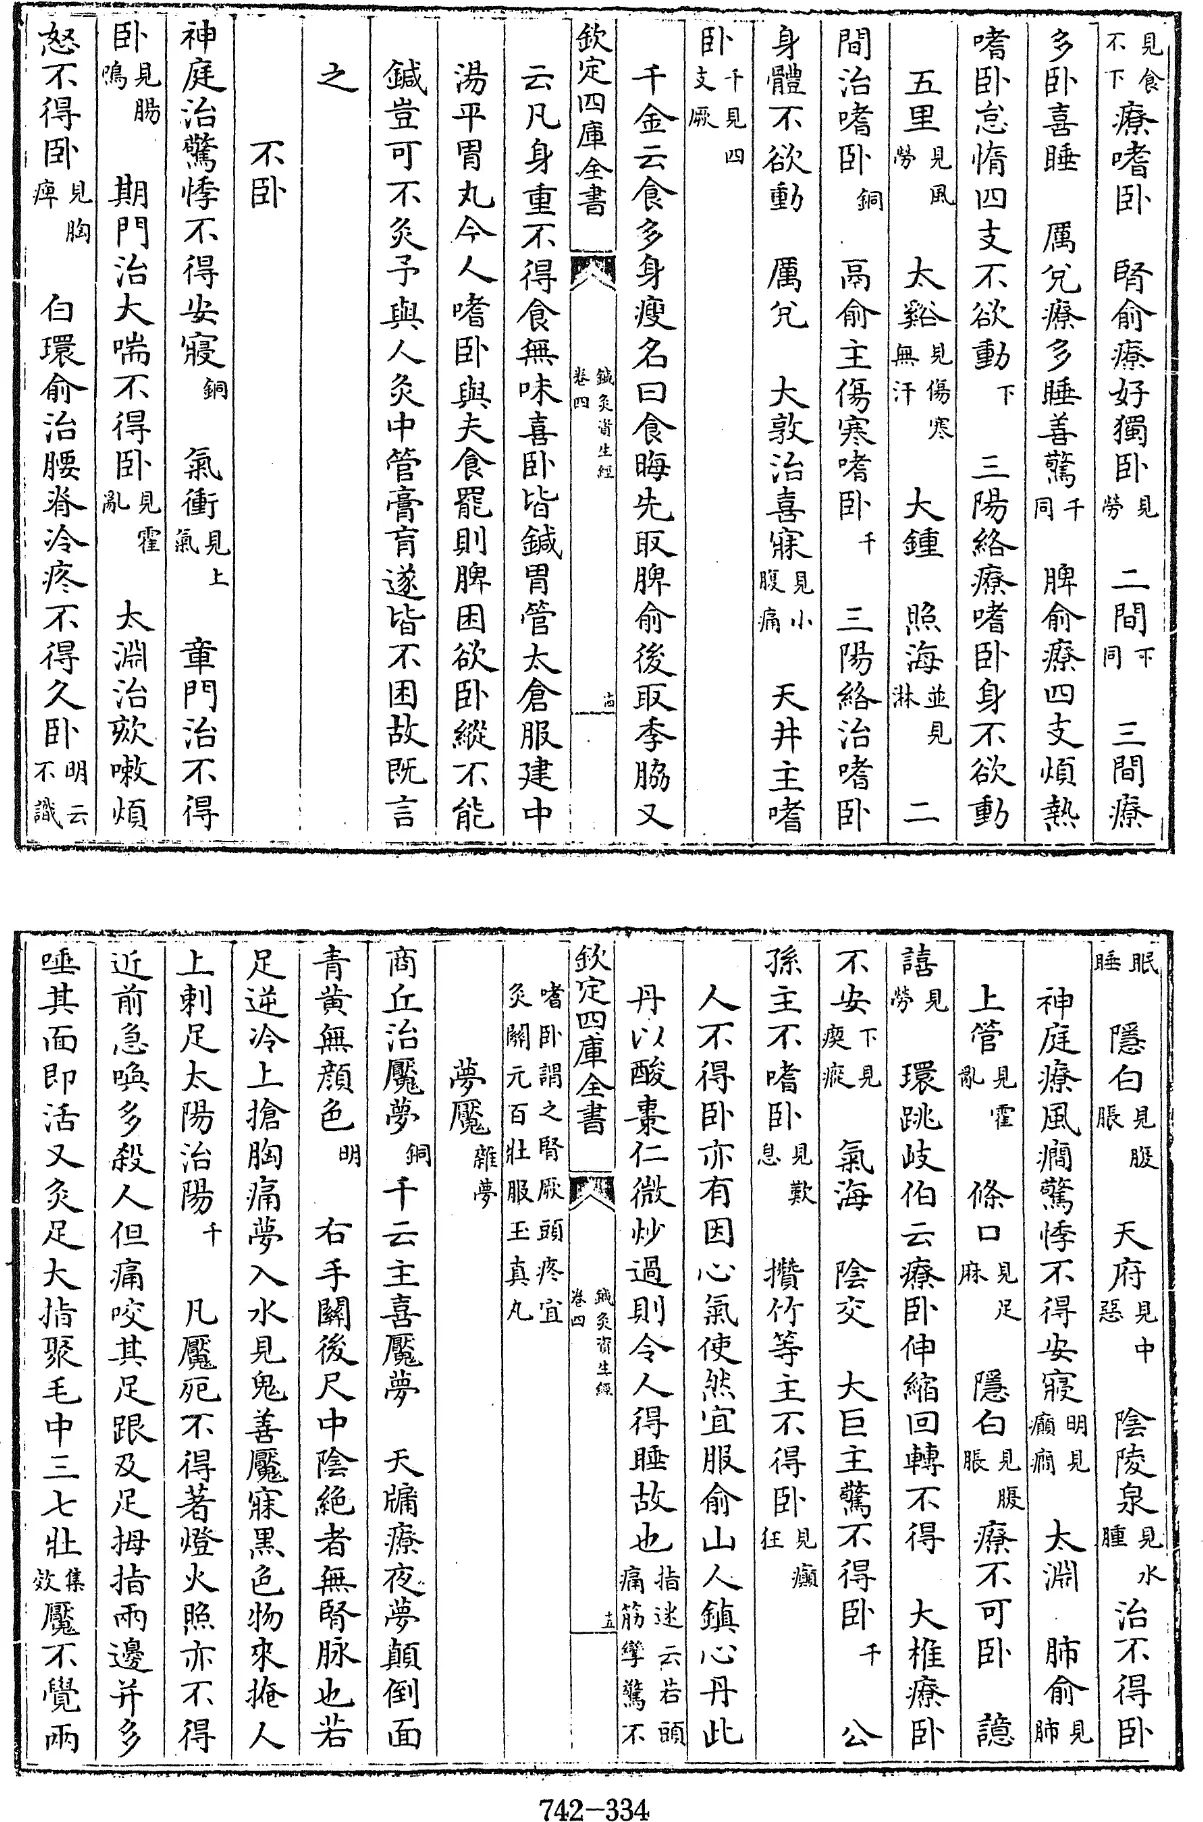 見食不下療嗜卧　腎俞療好獨卧見勞　二間下同　三間療
多卧喜睡　厲兌療多睡善驚千同　脾俞療四支煩熱
嗜卧怠惰四支不欲動下　三陽絡療嗜卧身不欲動
五里見風勞　太谿見傷寒無汗　大鍾　照海並見淋　二
間治嗜卧銅　鬲俞主傷寒嗜卧千　三陽絡治嗜卧
身體不欲動　厲兌　大敦治喜寐見小腹痛　天井主嗜
卧千見四支厥
千金云食多身瘦名曰食晦先取脾俞後取季脇又
欽定四庫全書　鍼灸資生經卷四　十四
云凡身重不得食無味喜卧皆鍼胃管太倉服建中
湯平胃丸今人嗜卧與夫食罷則脾困欲卧縱不能
鍼豈可不灸予與人灸中管膏肓遂皆不困故既言
之
不卧
神庭治驚悸不得安寢銅　氣衝見上氣　章門治不得
卧見腸鳴　期門治大喘不得卧見霍亂　太淵治欬嗽煩
怒不得卧見胸痺　白環俞治腰脊冷疼不得久卧明云不識
眠睡　隱白見腹脹　天府見中惡　陰陵泉見水腫治不得卧
神庭療風癇驚悸不得安寢明見癲癇　太淵　肺俞見肺
上管見霍亂　條口見足麻　隱白見腹脹療不可卧　譩
譆見勞　環跳岐伯云療卧伸縮回轉不得　大椎療卧
不安下見痎瘧　氣海　陰交　大巨主驚不得卧千　公
孫主不嗜卧見歎息　攢竹等主不得卧見癲狂
人不得卧亦有因心氣使然宜服俞山人鎮心丹此
丹以酸棗仁微炒過則令人得睡故也指迷云若頭痛筋攣驚不
欽定四庫全書　鍼灸資生經卷四　十五
嗜卧謂之腎厥頭疼宜灸關元百壯服玉真丸
夢魘雜夢
商丘治魘夢銅千云主喜魘夢　天牖療夜夢顛倒面
青黄無顔色明　右手關後尺中陰絶者無腎脉也若
足逆冷上搶胸痛夢入水見鬼善魘寐黑色物來掩人
上刺足太陽治陽千　凡魘死不得著燈火照亦不得
近前急喚多殺人但痛咬其足跟及足拇指兩邊并多
唾其面即活又灸足大指聚毛中三七壯集效魘不覺兩
742-334